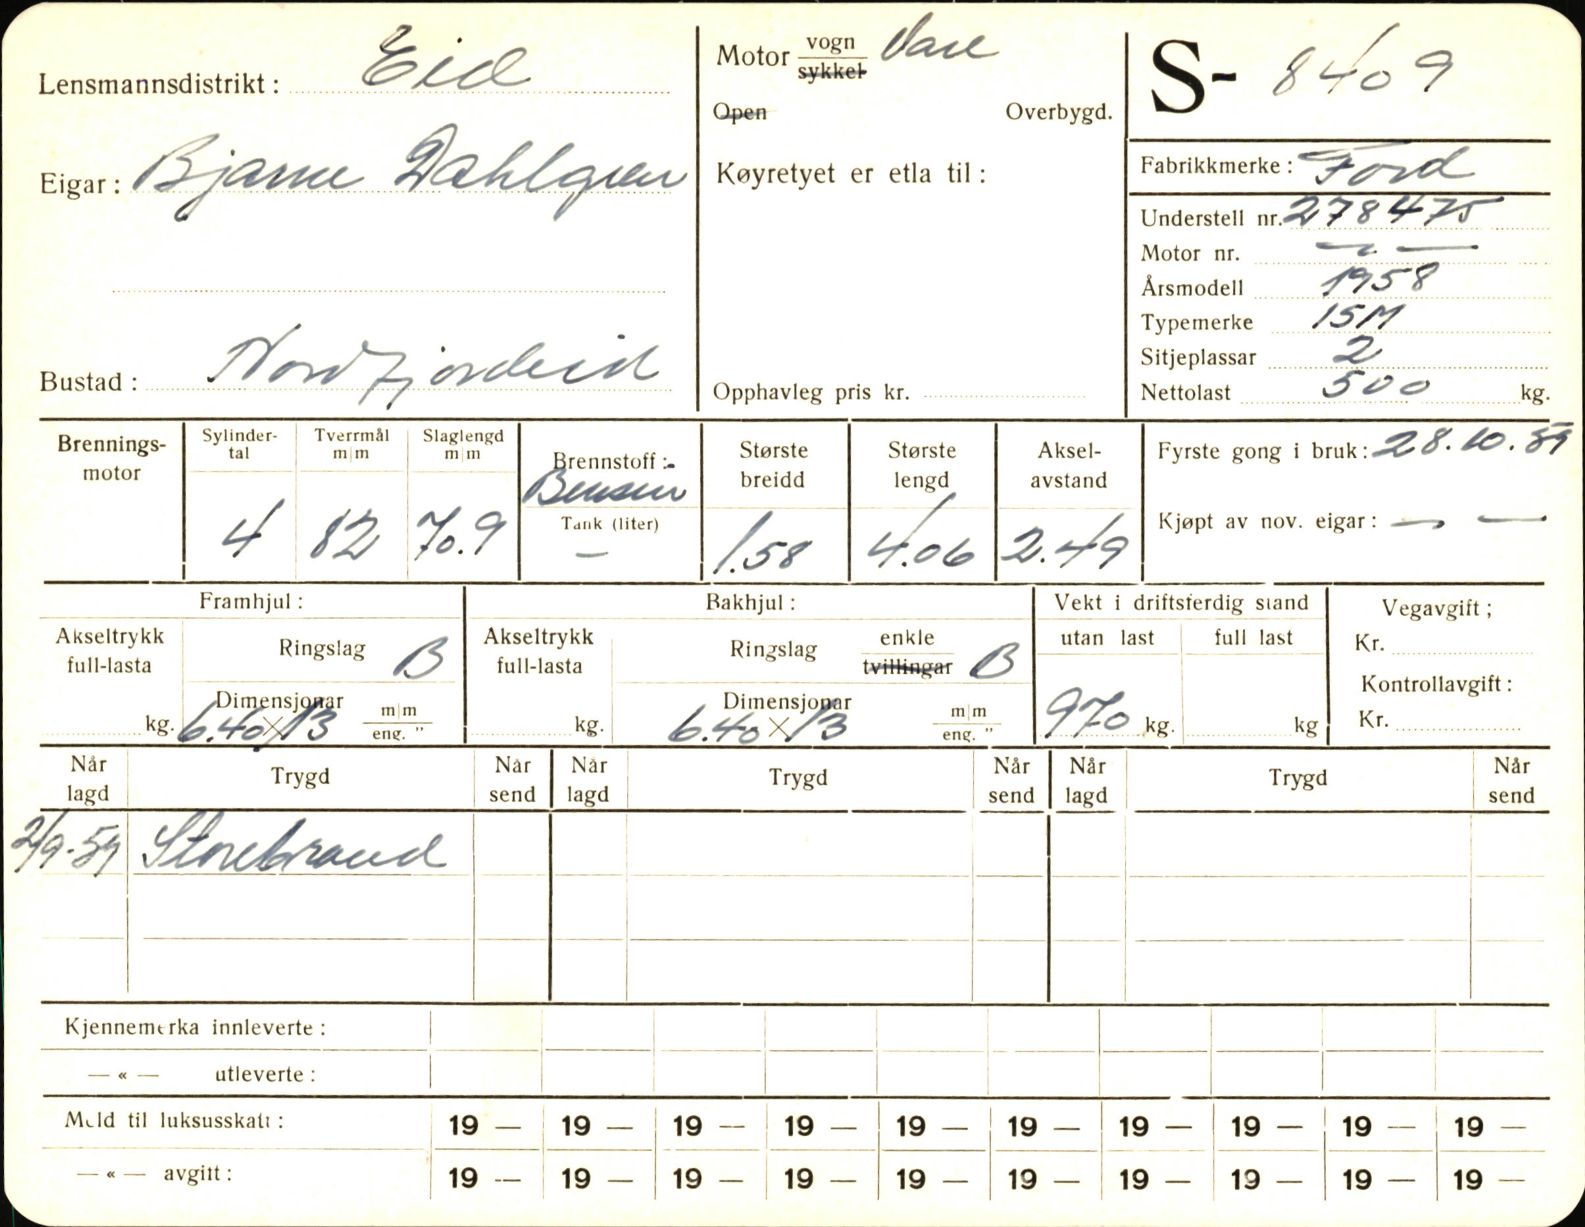 Lensmannsdistrikt: Eid
Eigar: Bjarne Dahlgren
Bustad: Nordfjordeid
Motor vogn Vare
sykkel
Open Overbygd.
Køyretyet er etla til:
Opphavleg pris kr.
S- 8409
Fabrikkmerke: Ford
Understell nr. 278475
Motor nr. — " —
Årsmodell 1958
Typemerke 15M
Sitjeplassar 2
Nettolast 500 kg.
Brennings-
motor
Sylinder-
tal
4
Tverrmål
m|m
82
Slaglengd
m|m
70.9
Brennstoff:
Bensin
Tank (liter)
—
Største
breidd
1.58
Største
lengd
4.06
Aksel-
avstand
2.49
Fyrste gong i bruk: 28.10.59
Kjøpt av nov. eigar: — " —
Framhjul:
Akseltrykk
full-lasta
kg.
Ringslag B
Dimensjonar
6.40 × 13 m|m
eng. "
Bakhjul:
Akseltrykk
full-lasta
kg.
Ringslag enkle
tvillingar B
Dimensjonar
6.40 × 13 m|m
eng. "
Vekt i driftsferdig stand
utan last full last
970 kg. kg
Vegavgift;
Kr.
Kontrollavgift:
Kr.
Når
lagd Trygd Når
send Når
lagd Trygd Når
send Når
lagd Trygd Når
send
2/9-59 Storebrand
Kjennemerka innleverte:
— « — utleverte:
Meld til luksusskatt: 19 — 19 — 19 — 19 — 19 — 19 — 19 — 19 — 19 — 19 —
— « — avgitt: 19 — 19 — 19 — 19 — 19 — 19 — 19 — 19 — 19 — 19 —